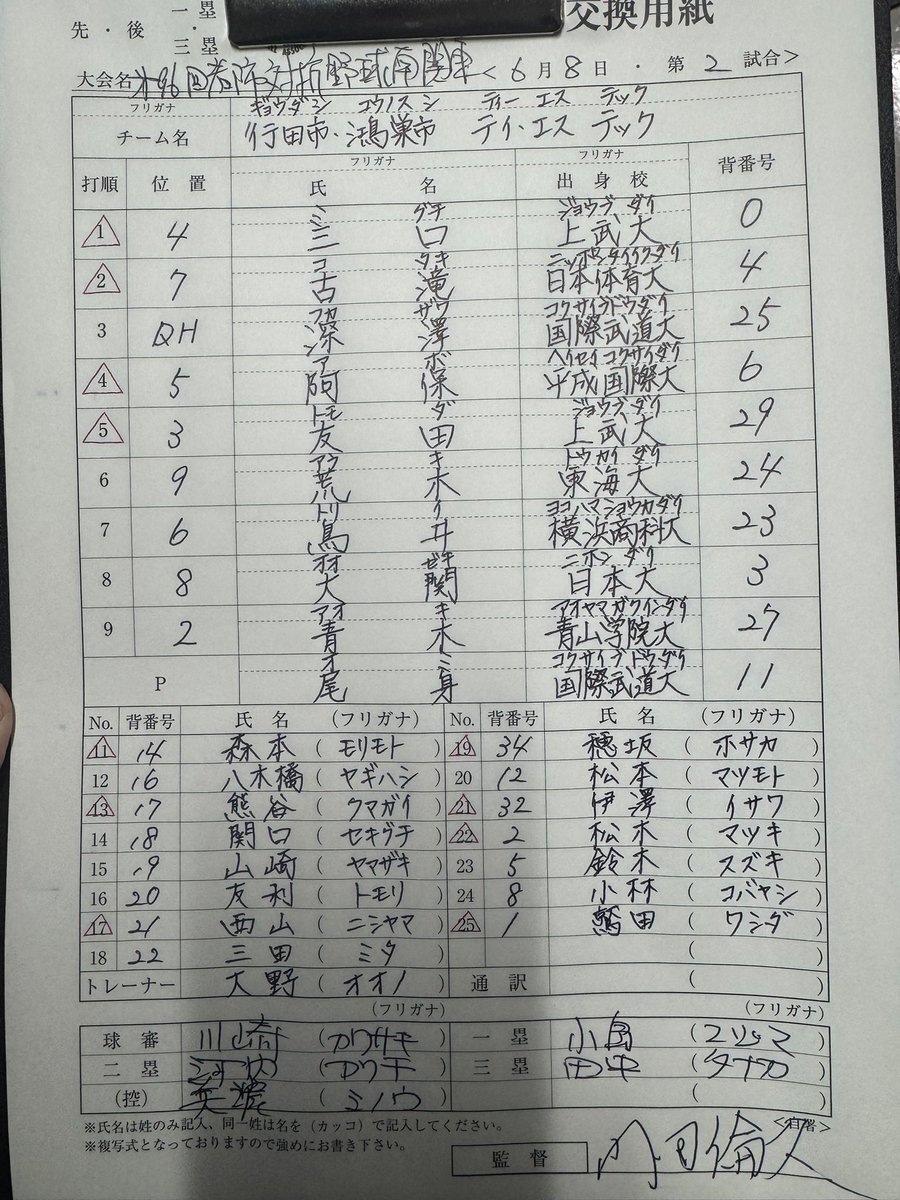 交換用紙
先・後・一塁 三塁
大会名 第96回都市対抗野球南関東 <6月8日・第2試合>
フリガナ ギョウダシ コウノスシ ティー エス テック
チーム名 行田市・鴻巣市 テイ・エス テック
打順 位置 フリガナ 氏名 フリガナ 出身校 背番号
ミ グチ ジョウブ ダイ
1 4 三口 上武大 0
コ タキ ニッポンタイイクダイ
2 7 古滝 日本体育大 4
フカ ザワ コクサイブドウダイ
3 DH 深澤 国際武道大 25
ア ボ ヘイセイコクサイダイ
4 5 阿保 平成国際大 6
トモ ダ ジョウブダイ
5 3 友田 上武大 29
アラ キ トウカイ ダイ
6 9 荒木 東海大 24
トリ イ ヨコハマショウカダイ
7 6 鳥井 横浜商科大 23
オオ ゼキ ニホン ダイ
8 8 大関 日本大 3
アオ キ アオヤマガクインダイ
9 2 青木 青山学院大 27
オ ミ コクサイブドウダイ
P 尾身 国際武道大 11
No. 背番号 氏名 (フリガナ) No. 背番号 氏名 (フリガナ)
11 14 森本 (モリモト) 19 34 穂坂 (ホサカ)
12 16 八木橋 (ヤギハシ) 20 12 松本 (マツモト)
13 17 熊谷 (クマガイ) 21 32 伊澤 (イサワ)
14 18 関口 (セキグチ) 22 2 松木 (マツキ)
15 19 山崎 (ヤマザキ) 23 5 鈴木 (スズキ)
16 20 友利 (トモリ) 24 8 小林 (コバヤシ)
17 21 西山 (ニシヤマ) 25 1 鷲田 (ワシダ)
18 22 三田 (ミタ) ( )
トレーナー 大野 (オオノ) 通訳 ( )
(フリガナ) (フリガナ)
球審 川崎 (カワサキ) 一塁 小島 (コジマ)
二塁 河内 (カワチ) 三塁 田中 (タナカ)
(控) (ミノウ) ( )
※氏名は姓のみ記入、同一姓は名を(カッコ)で記入してください。 <自署>
※複写式となっておりますので強めにお書き下さい。
監督 内田倫久